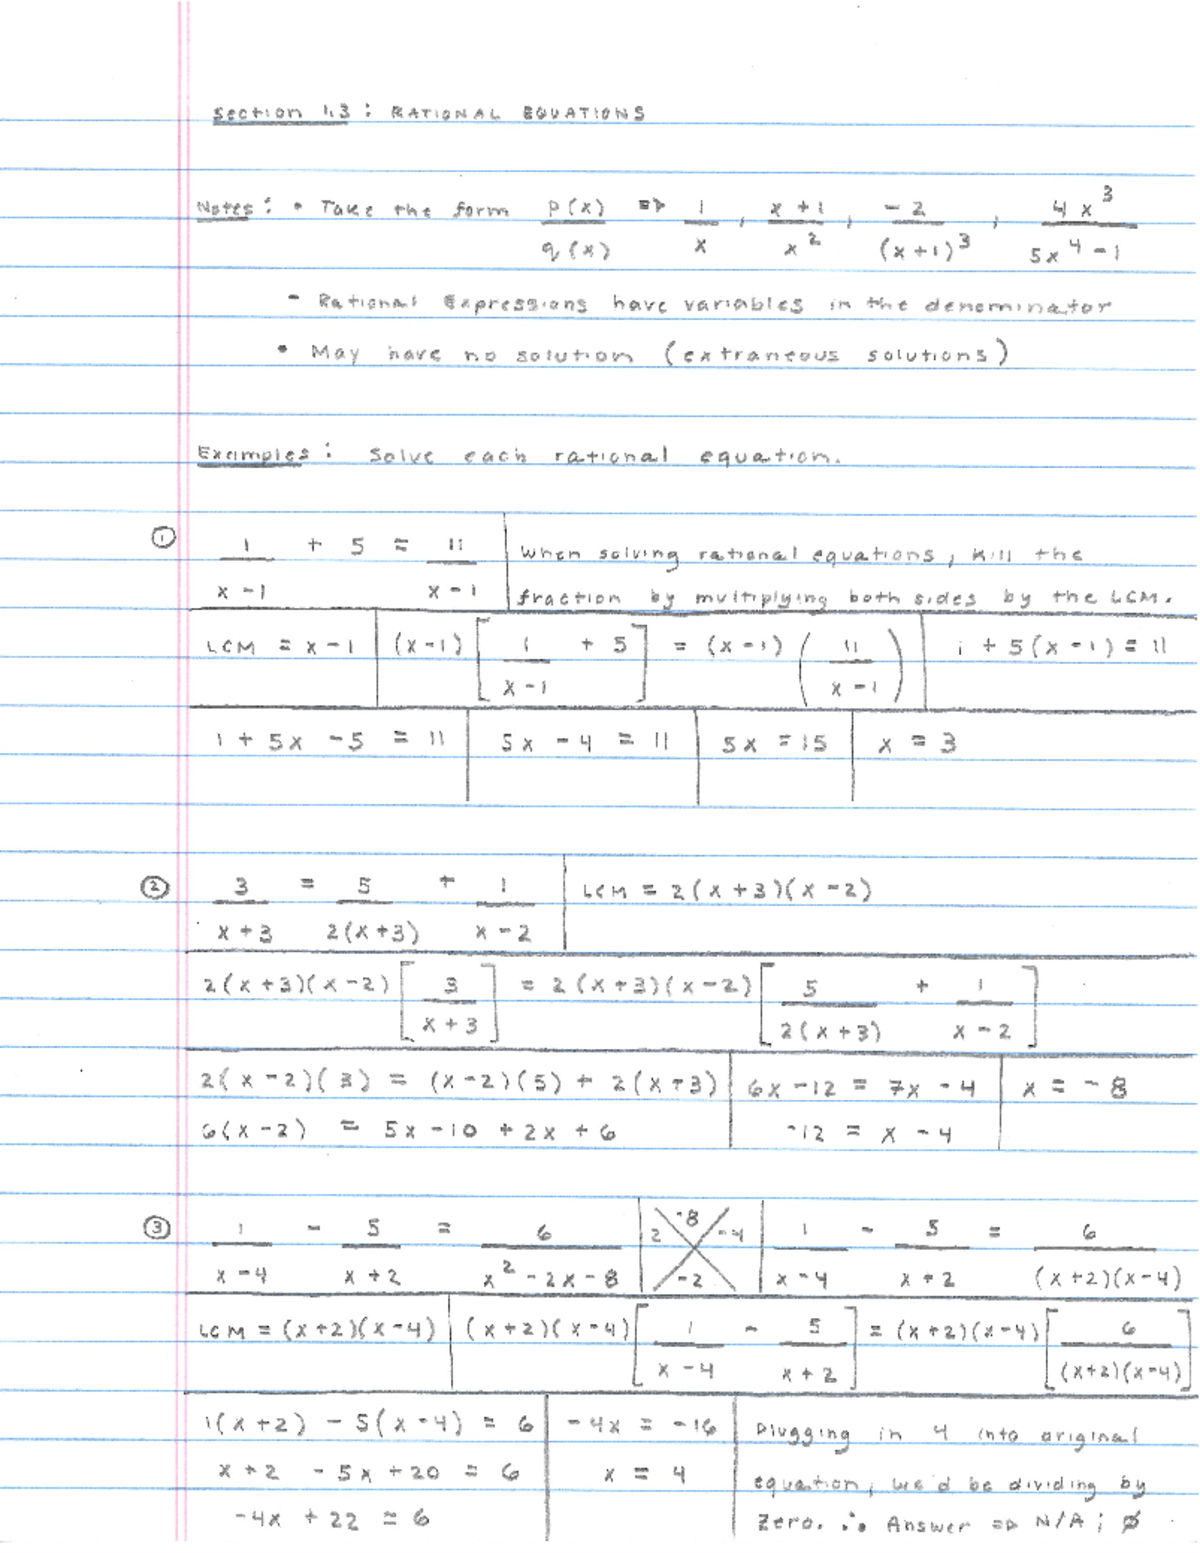 Section 1.3 : RATIONAL EQUATIONS
Notes : • Take the form p(x)/q(x) ⇒ 1/x , (x+1)/x² , -2/(x+1)³ , 4x³/(5x⁴-1)
- Rational Expressions have variables in the denominator
• May have no solution (extraneous solutions)
Examples : Solve each rational equation.
① 1/(x-1) + 5 = 11/(x-1) | When solving rational equations, kill the
fraction by multiplying both sides by the LCM.
LCM = x-1 | (x-1)[1/(x-1) + 5] = (x-1)(11/(x-1)) | 1 + 5(x-1) = 11
1 + 5x - 5 = 11 | 5x - 4 = 11 | 5x = 15 | x = 3
② 3/(x+3) = 5/(2(x+3)) + 1/(x-2) | LCM = 2(x+3)(x-2)
2(x+3)(x-2)[3/(x+3)] = 2(x+3)(x-2)[5/(2(x+3)) + 1/(x-2)]
2(x-2)(3) = (x-2)(5) + 2(x+3) | 6x-12 = 7x-4 | x = -8
6(x-2) = 5x-10 + 2x + 6 | -12 = x-4
③ 1/(x-4) - 5/(x+2) = 6/(x²-2x-8) | -8 2 -4 -2 | 1/(x-4) - 5/(x+2) = 6/((x+2)(x-4))
LCM = (x+2)(x-4) | (x+2)(x-4)[1/(x-4) - 5/(x+2)] = (x+2)(x-4)[6/((x+2)(x-4))]
1(x+2) - 5(x-4) = 6 | -4x = -16 | Plugging in 4 into original
x+2 - 5x + 20 = 6 | x = 4 | equation, we'd be dividing by
-4x + 22 = 6 | zero. ∴ Answer ⇒ N/A ; ∅